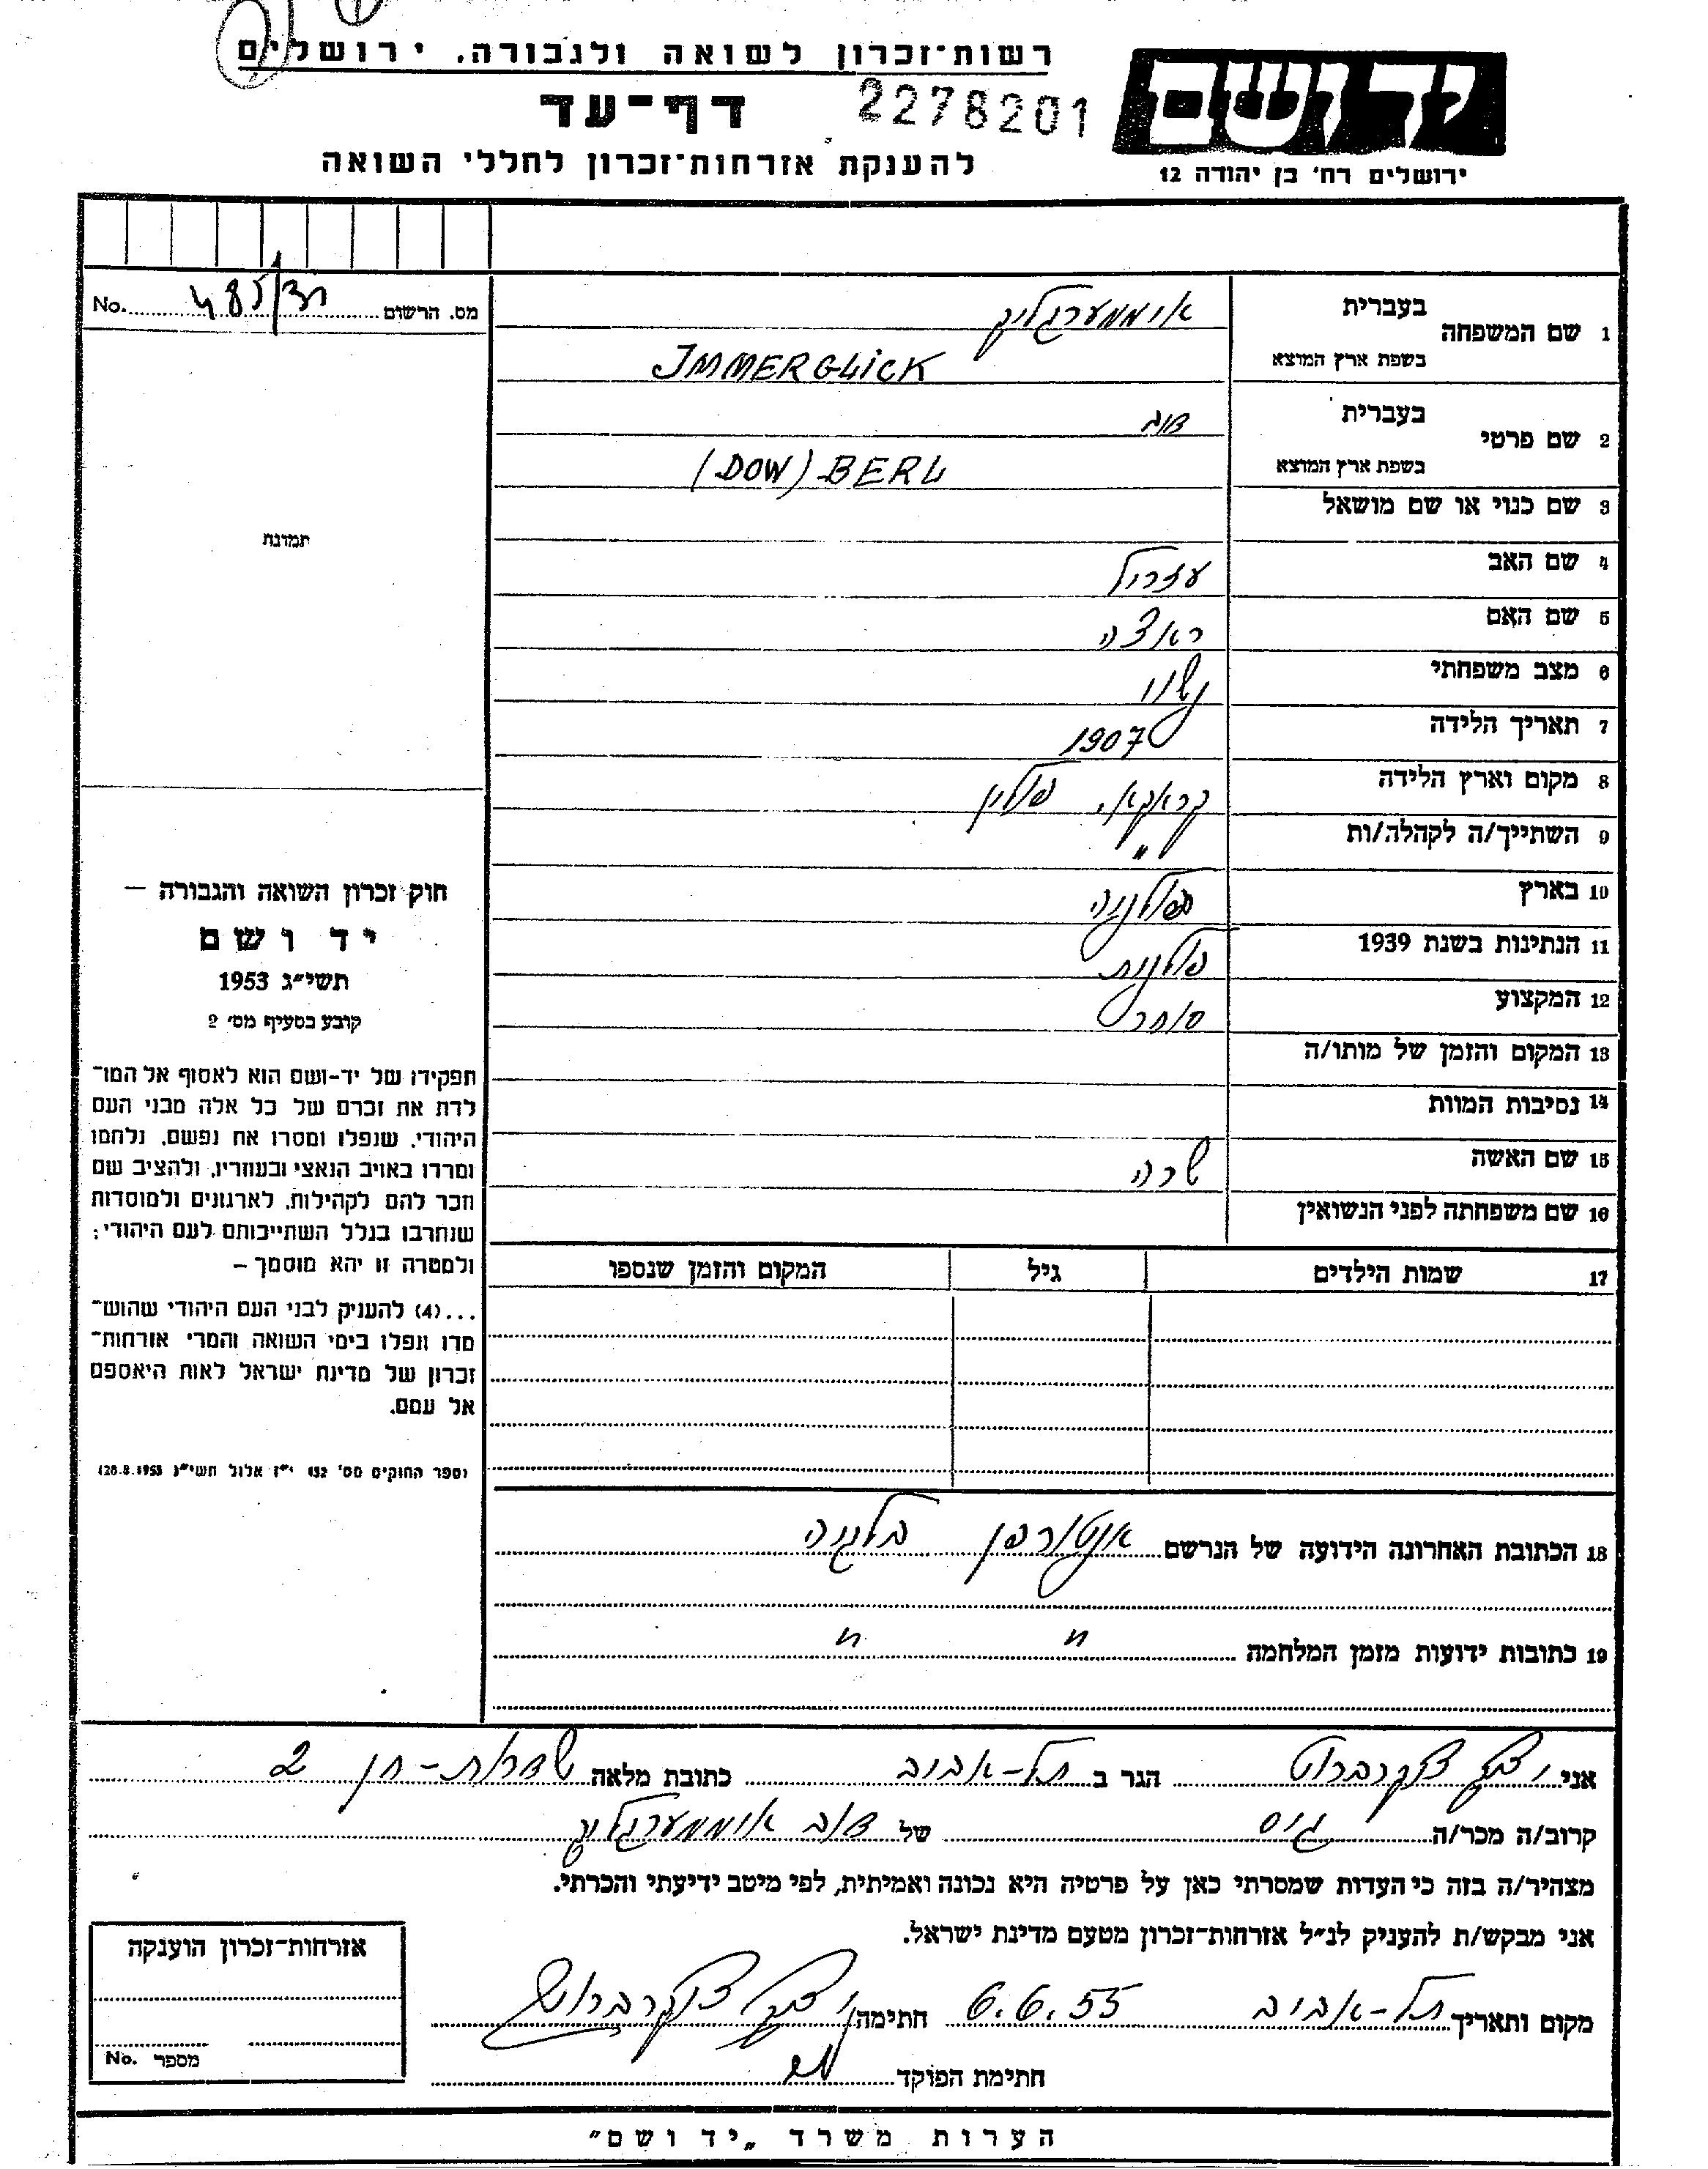 רשות־זכרון לשואה ולגבורה. ירושלים
יד ושם
דף־עד 2278201
להענקת אזרחות־זכרון לחללי השואה
ירושלים רח' בן יהודה 12
מס. הרשום No.
1 שם המשפחה
בעברית אימערגליק
בשפת ארץ המוצא IMMERGLICK
2 שם פרטי
בעברית דוב
בשפת ארץ המוצא (DOW) BERL
3 שם כנוי או שם מושאל
4 שם האב עזריאל
5 שם האם
6 מצב משפחתי נשוי
7 תאריך הלידה 1907
8 מקום וארץ הלידה קראקא, פולין
9 השתייך/ה לקהלה/ות "
10 בארץ
11 הנתינות בשנת 1939 פולנית
12 המקצוע סוחר
13 המקום והזמן של מותו/ה
14 נסיבות המוות
15 שם האשה שרה
16 שם משפחתה לפני הנשואין
17 שמות הילדים גיל המקום והזמן שנספו
18 הכתובת האחרונה הידועה של הנרשם אנטורפן בלגיה
19 כתובות ידועות מזמן המלחמה " "
תמונת
חוק זכרון השואה והגבורה —
יד ושם
תשי״ג 1953
קובע בסעיף מס׳ 2
תפקידו של יד-ושם הוא לאסוף אל המו־
לדת את זכרם של כל אלה מבני העם
היהודי, שנפלו ומסרו את נפשם, נלחמו
ומרדו באויב הנאצי ובעוזריו, ולהציב שם
וזכר להם לקהילות, לארגונים ולמוסדות
שנחרבו בגלל השתייכותם לעם היהודי;
ולמטרה זו יהא מוסמך –
...(4) להעניק לבני העם היהודי שהוש־
מדו ונפלו בימי השואה והמרי אזרחות־
זכרון של מדינת ישראל לאות היאספם
אל עמם.
(ספר החוקים מס׳ 132 י״ז אלול תשי״ג 28.8.1953)
אני הגר ב תל-אביב כתובת מלאה שדרות-חן 2
קרוב/ה מכר/ה גיס של דוב אימערגליק
מצהיר/ה בזה כי העדות שמסרתי כאן על פרטיה היא נכונה ואמיתית, לפי מיטב ידיעתי והכרתי.
אני מבקש/ת להעניק לנ״ל אזרחות־זכרון מטעם מדינת ישראל.
מקום ותאריך תל-אביב 6.6.55 חתימה
חתימת הפוקד
אזרחות־זכרון הוענקה
מספר No.
הערות משרד „יד ושם"